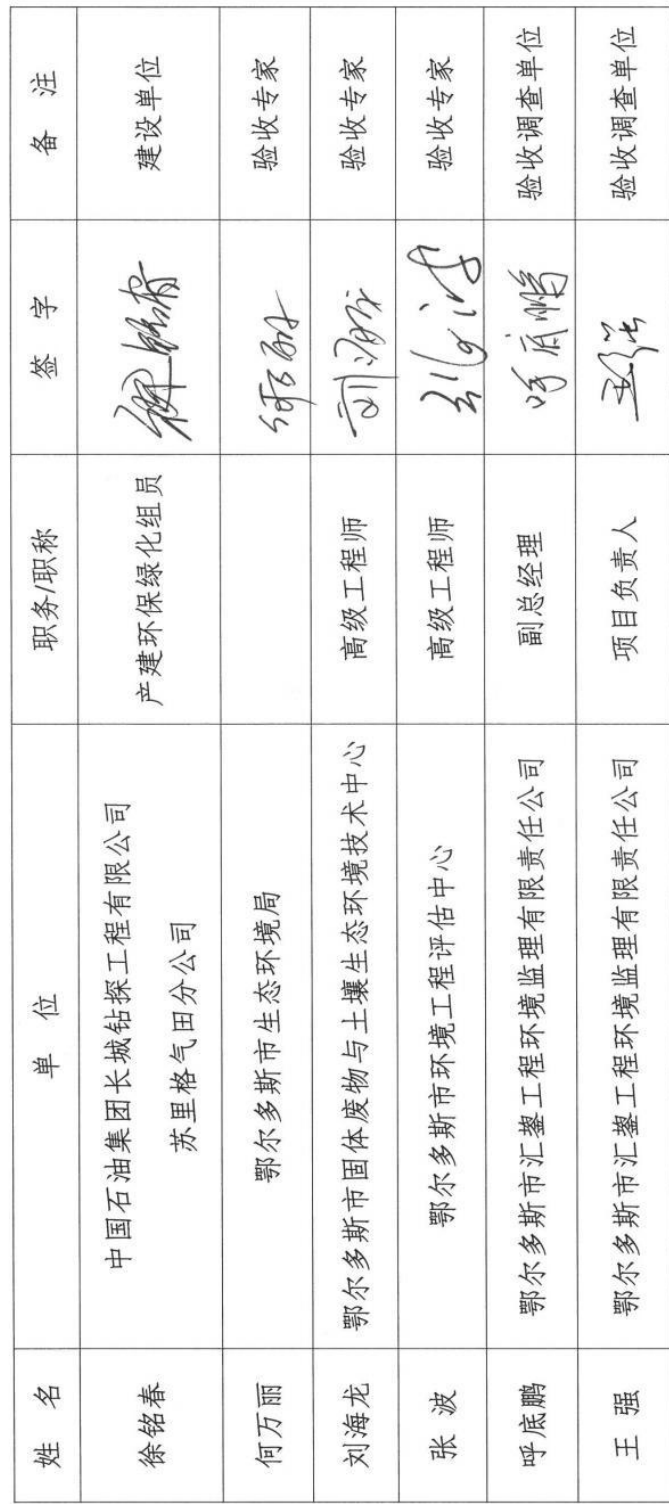 姓 名 单 位 职务/职称 签 字 备 注
徐铭春 中国石油集团长城钻探工程有限公司 产建环保绿化组员 建设单位
苏里格气田分公司
何万丽 鄂尔多斯市生态环境局 验收专家
刘海龙 鄂尔多斯市固体废物与土壤生态环境技术中心 高级工程师 刘海龙 验收专家
张 波 鄂尔多斯市环境工程评估中心 高级工程师 验收专家
呼底鹏 鄂尔多斯市汇鋆工程环境监理有限责任公司 副总经理 呼底鹏 验收调查单位
王 强 鄂尔多斯市汇鋆工程环境监理有限责任公司 项目负责人 王强 验收调查单位